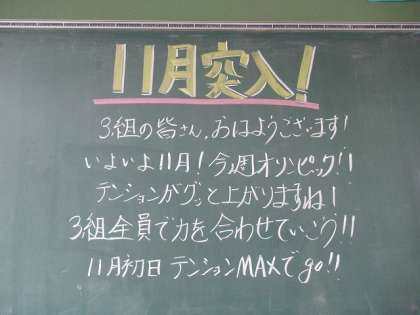 11月突入!
3組の皆さん、おはようございます!
いよいよ11月!今週オリンピック!!
テンションがグッと上がりますね!
3組全員で力を合わせていこう!!
11月初日 テンションMAXで go!!